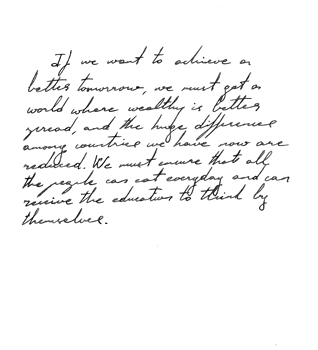 If we want to achieve a
better tomorrow, we must get a
world where wealthy is better
spread, and the huge difference
among countries we have now are
reduced. We must ensure that all
the people can eat everyday and can
receive the education to think by
themselves.